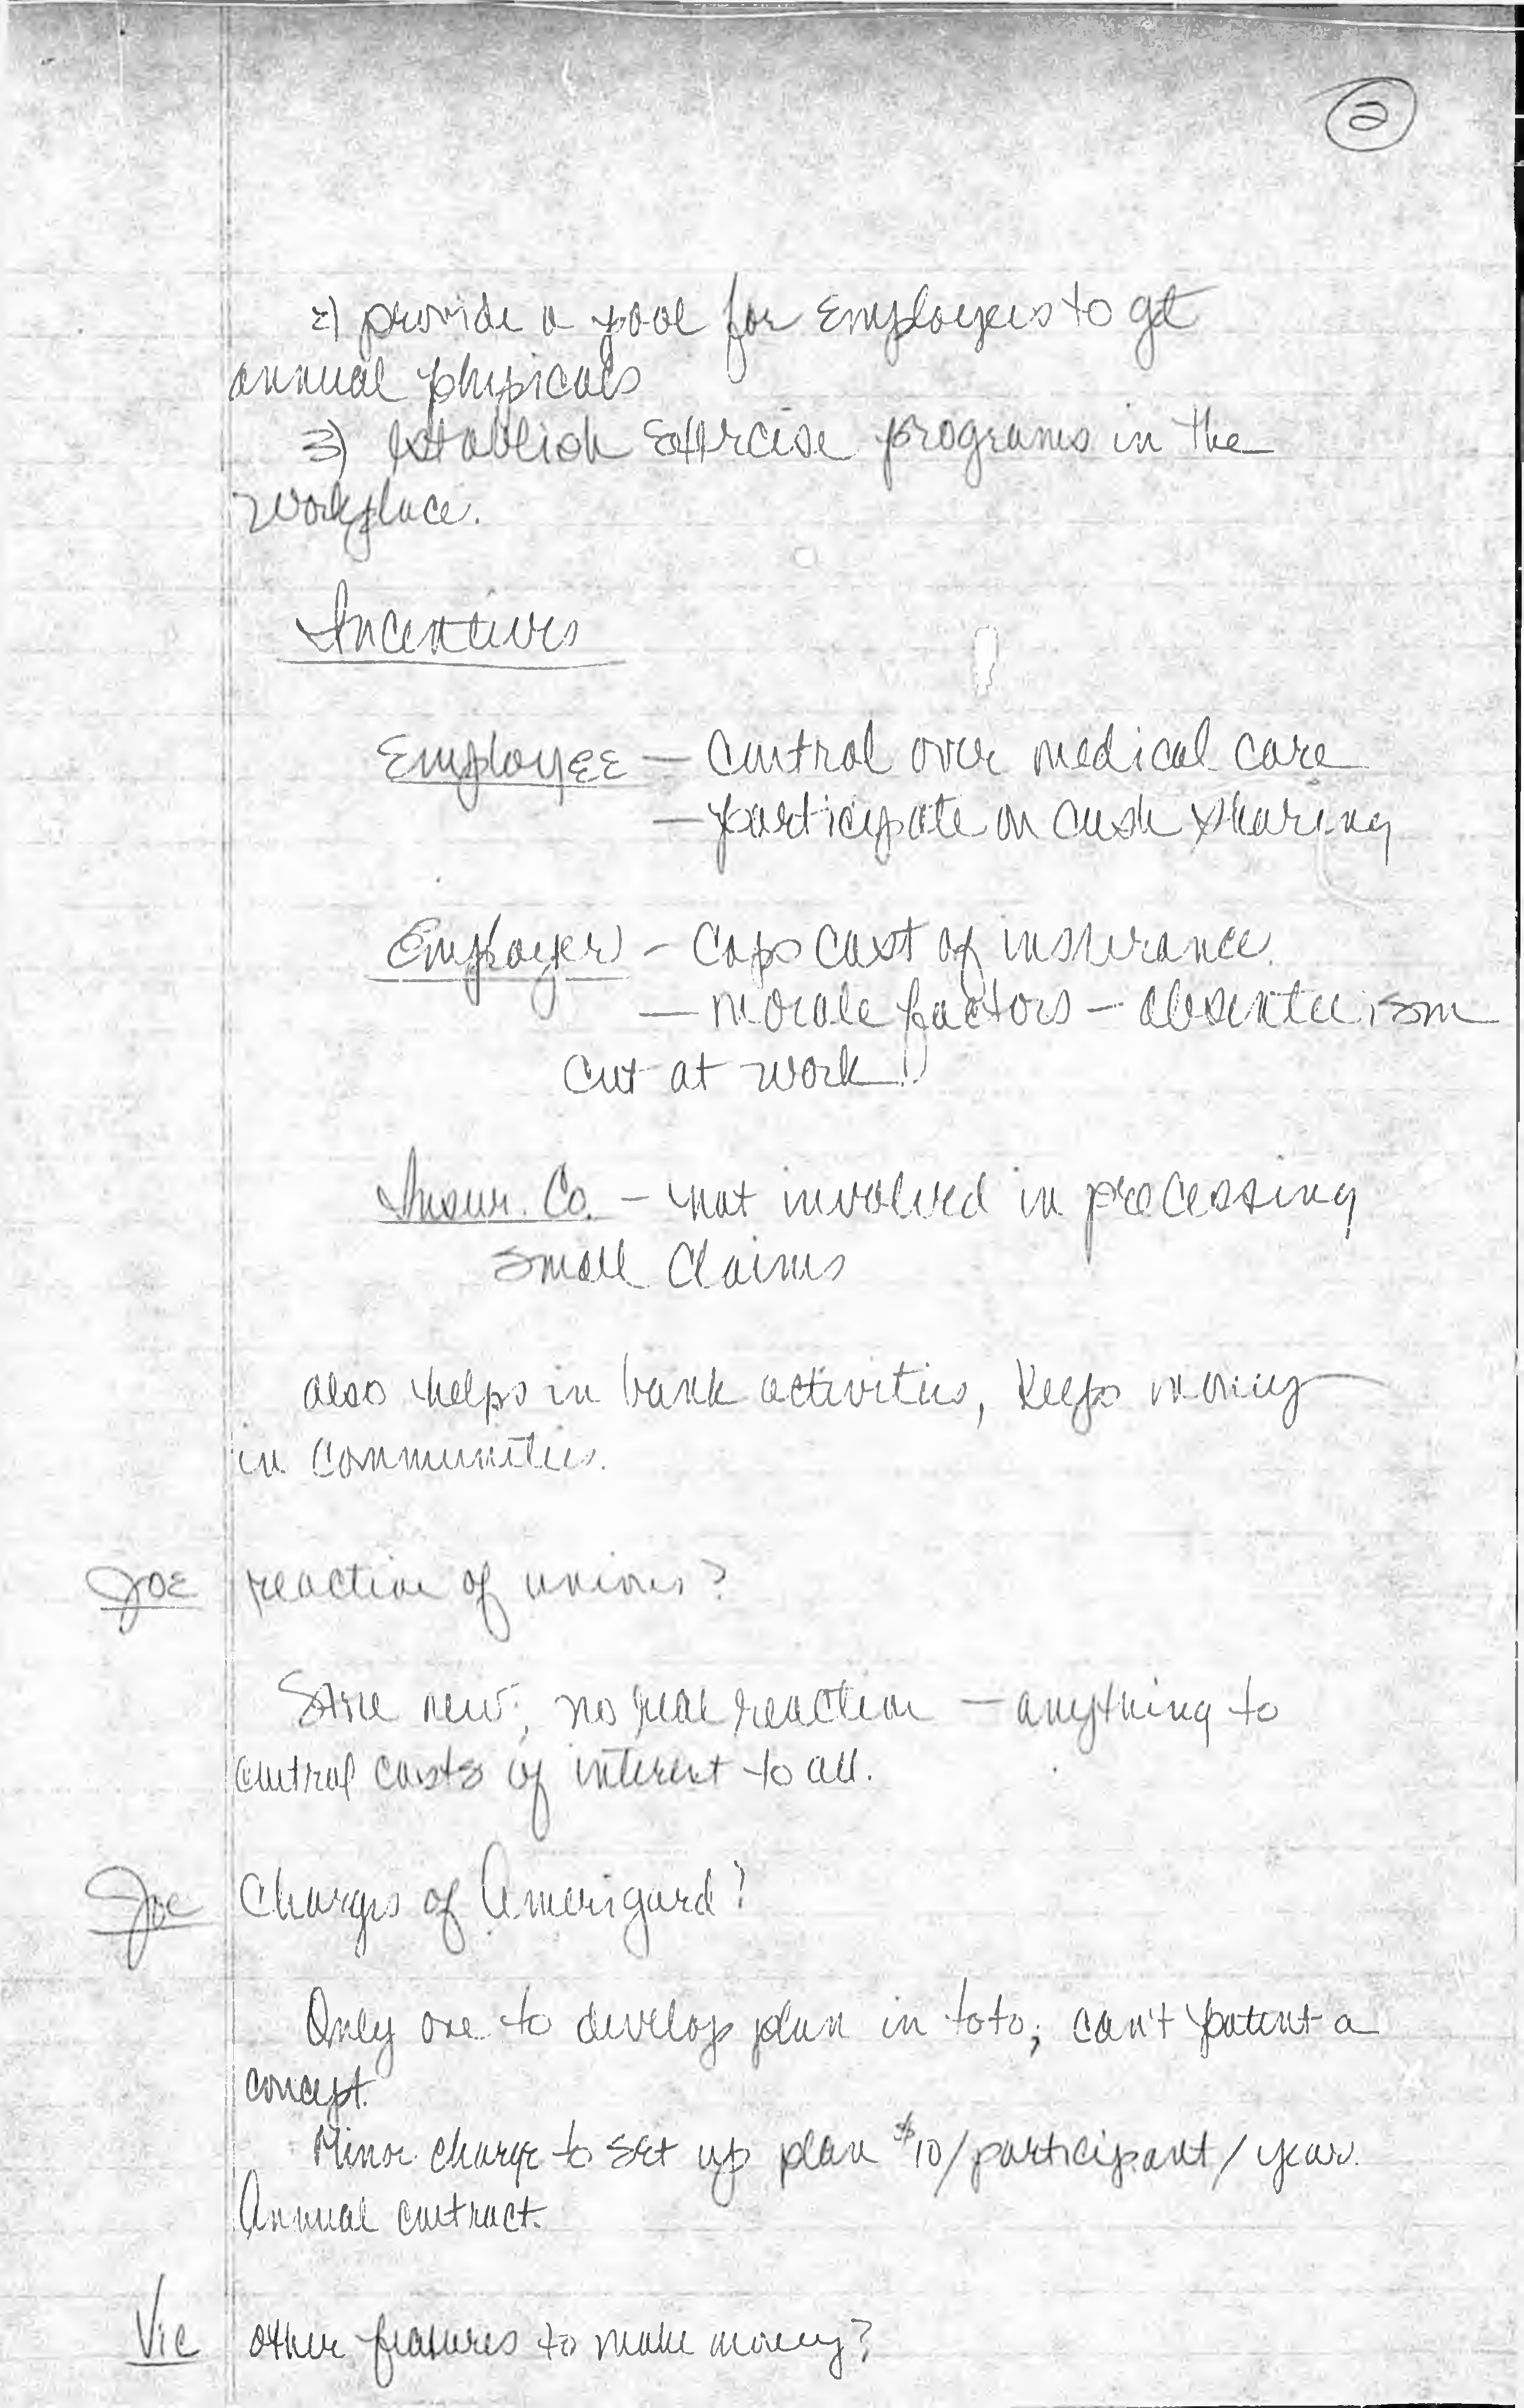 2
2) provide a pool for Employees to get
annual physicals
3) establish Exercise programs in the
workplace.
Incentives
Employee — Control over medical care
— participate in cash sharing
Employer — Caps cost of insurance.
— morale factors — absenteeism
cut at work!
Insur. Co. — not involved in processing
small claims
also helps in bank activities, keeps money
in communities.
Joe reaction of unions?
Still new; no real reaction — anything to
control costs of interest to all.
Joe Charges of Amerigard?
Only one to develop plan in toto; can't patent a
concept.
Minor charge to set up plan $10/participant/year.
Annual contract.
Vic other features to make money?